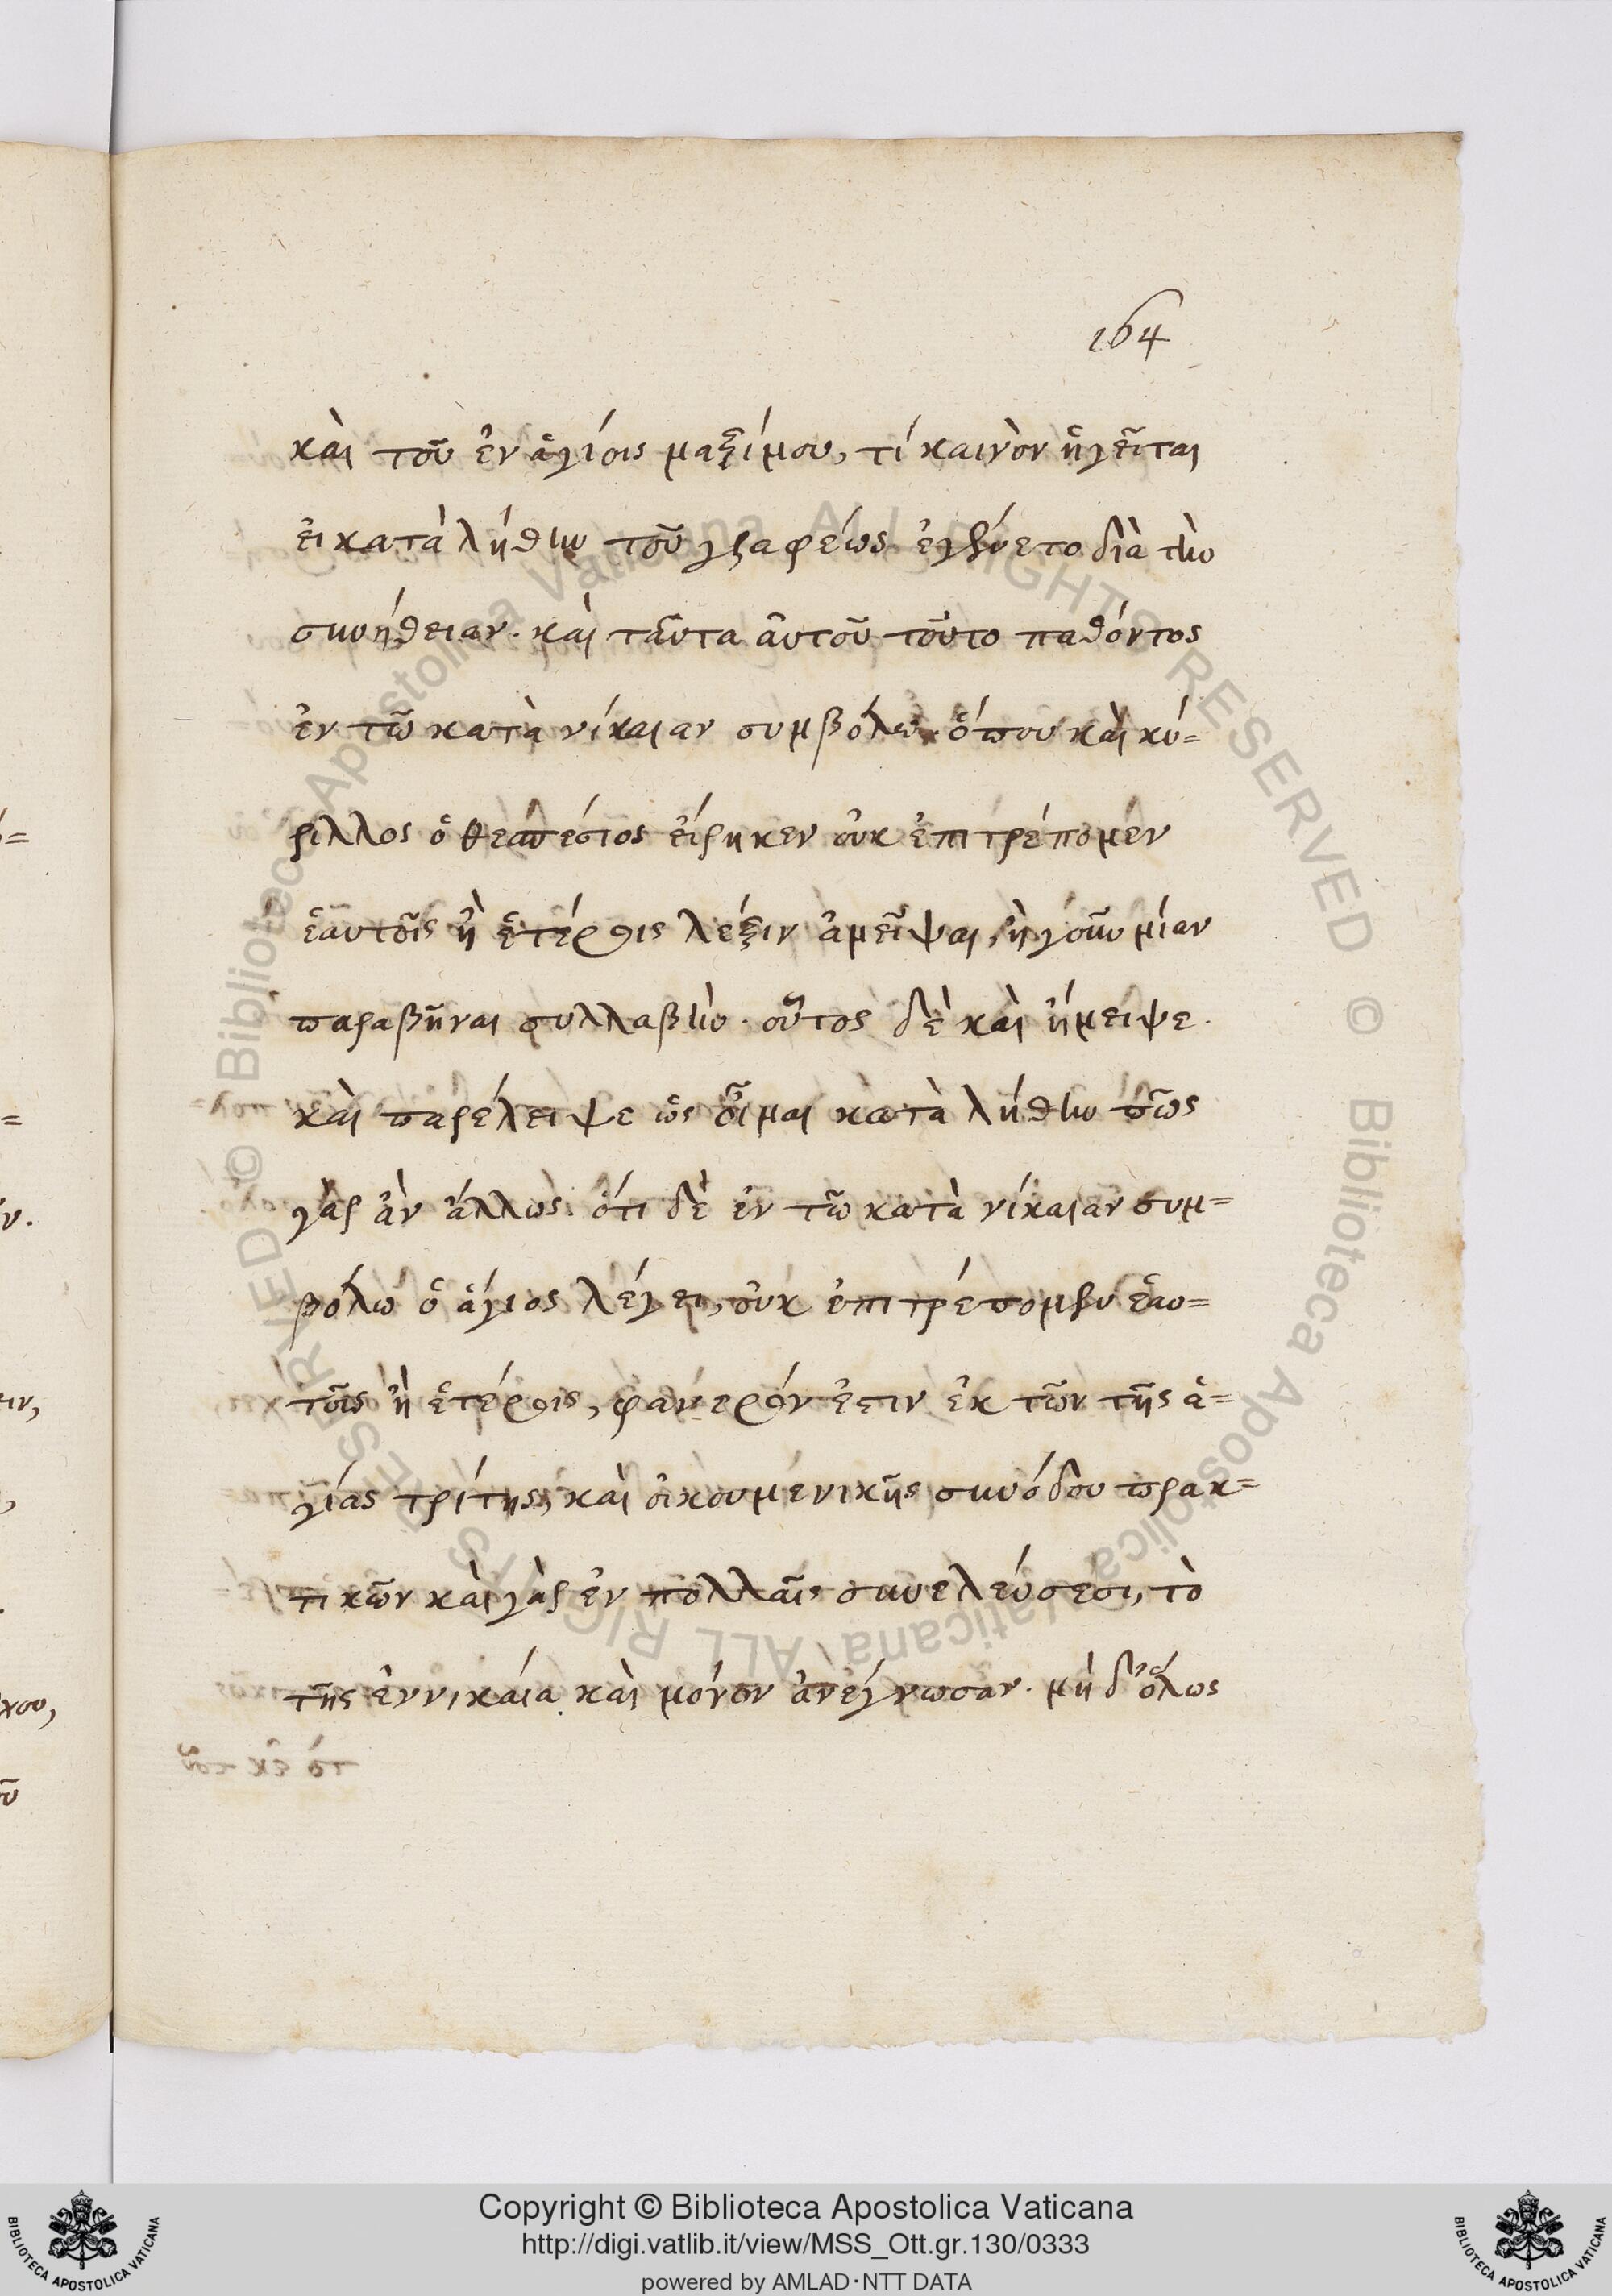 164
καὶ τοῦ ἐν ἁγίοις μαξίμου, τί καινὸν ἡγεῖται
εἰ κατὰ λήθην τοῦ γραφέως ἐγένετο διὰ τὴν
συνήθειαν. καὶ ταῦτα αὐτοῦ τοῦτο παθόντος
ἐν τῶ κατὰ νίκαιαν συμβόλω. ὅπου καὶ κύ=
ριλλος ὁ θεσπέσιος εἴρηκεν οὐκ ἐπιτρέπομεν
ἑαυτοῖς ἢ ἑτέροις λέξιν ἀμεῖψαι, ἢ γοῦν μίαν
παραβῆναι συλλαβὴν. οὗτος δὲ καὶ ἤμειψε.
καὶ παρέλειψε ὡς οἶμαι κατὰ λήθην πῶς
γὰρ ἂν ἄλλως. ὅτι δὲ ἐν τῶ κατὰ νίκαιαν συμ=
βόλω ὁ ἅγιος λέγει, οὐκ ἐπιτρέπομεν ἑαυ=
τοῖς ἢ ἑτέροις, φανερόν ἐστιν ἐκ τῶν τῆς ἁ=
γίας τρίτης, καὶ οἰκουμενικῆς συνόδου πρακ=
τικῶν καὶ γὰρ ἐν πολλαῖς συνελεύσεσι, τὸ
τῆς ἐν νικαία καὶ μόνον ἀνέγνωσαν. μὴ δ' ὅλως
Copyright © Biblioteca Apostolica Vaticana
http://digi.vatlib.it/view/MSS_Ott.gr.130/0333
powered by AMLAD·NTT DATA
BIBLIOTECA APOSTOLICA VATICANA
BIBLIOTECA APOSTOLICA VATICANA
© Biblioteca Apostolica Vaticana ALL RIGHTS RESERVED © Biblioteca Apostolica Vaticana ALL RIGHTS RESERVED